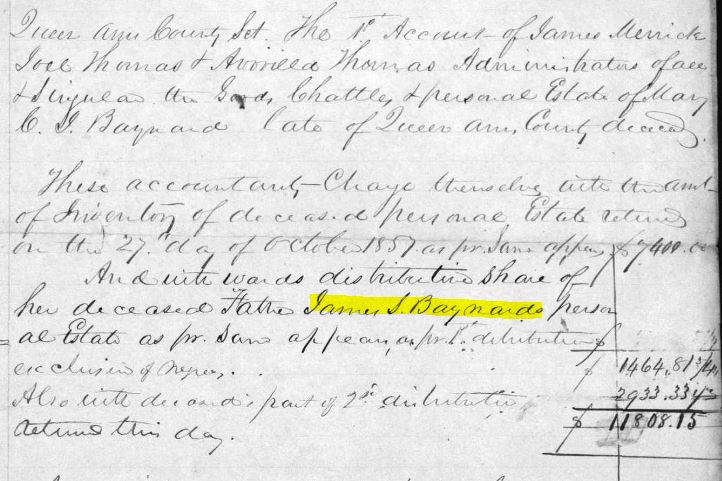 Queen Ann County Sct. The 1st Account of James Merrick
Joel Thomas & Avorilla Thomas Administrators of all
& Singular the Goods, Chattles, & personal Estate of Mary
C. J. Baynard late of Queen Ann, County deceased.
These accountants Charge themselves with the amt
of Inventory of deceased personal Estate returned
on the 27th day of October 1857 as pr. Same appears $7400.00
And with wards distributive Share of
her deceased Father James S. Baynards person
al Estate as pr. Same appears, as pr. 1st distribution $
exclusive of negroes, . . $ 1464.81
Also with deceased's part of 2nd distribution 2933.33
returned this day. $ 11808.15